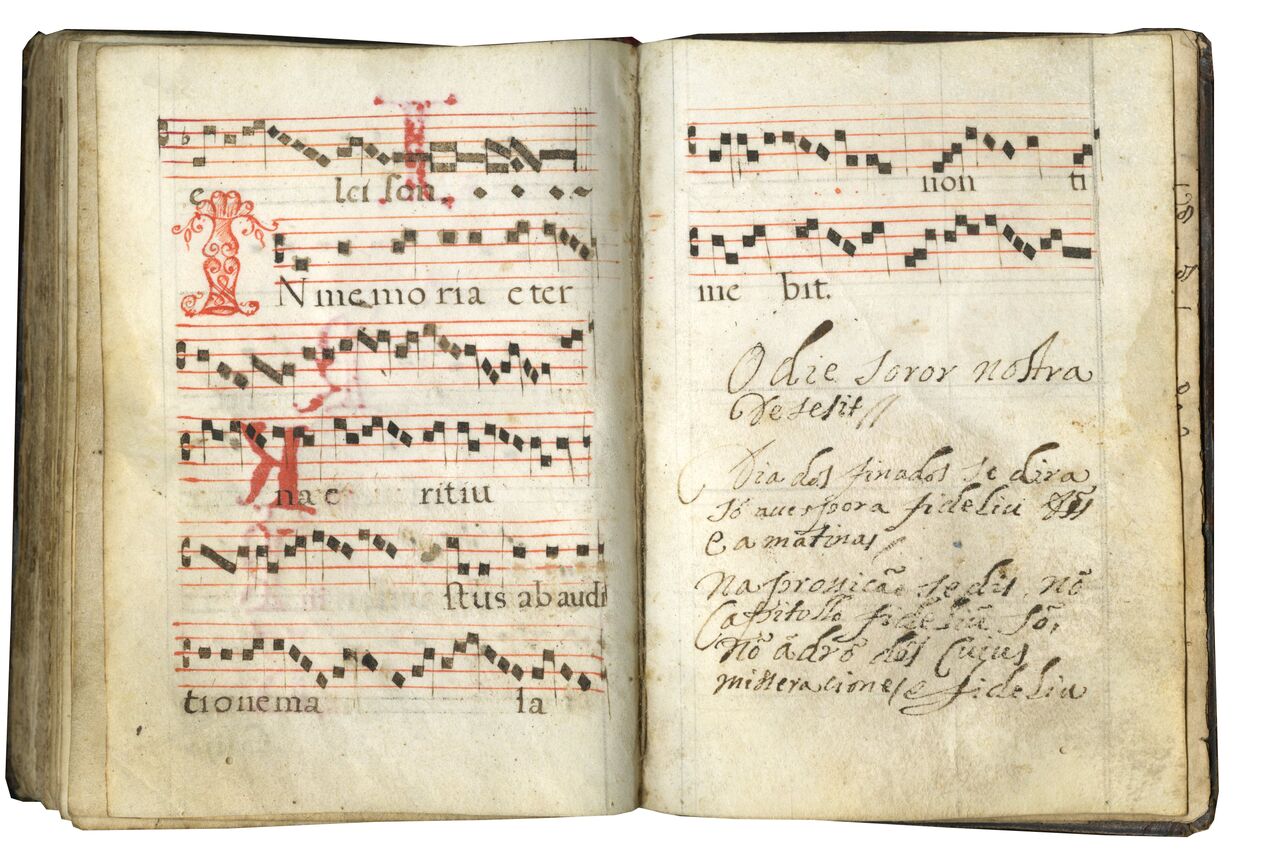 e lei son.
IN memo ria eter
na e ritiu
stus ab audi
tionema la
non ti
me bit.
Odie soror nostra
Desesit
Dia dos finados se dira
só a vespora fideliu
e a matinas
Na prosicão se dis nõ
Capitollo fideliũ sõ,
nõ ádrõ dos Cuius
misseraciones e fideliu